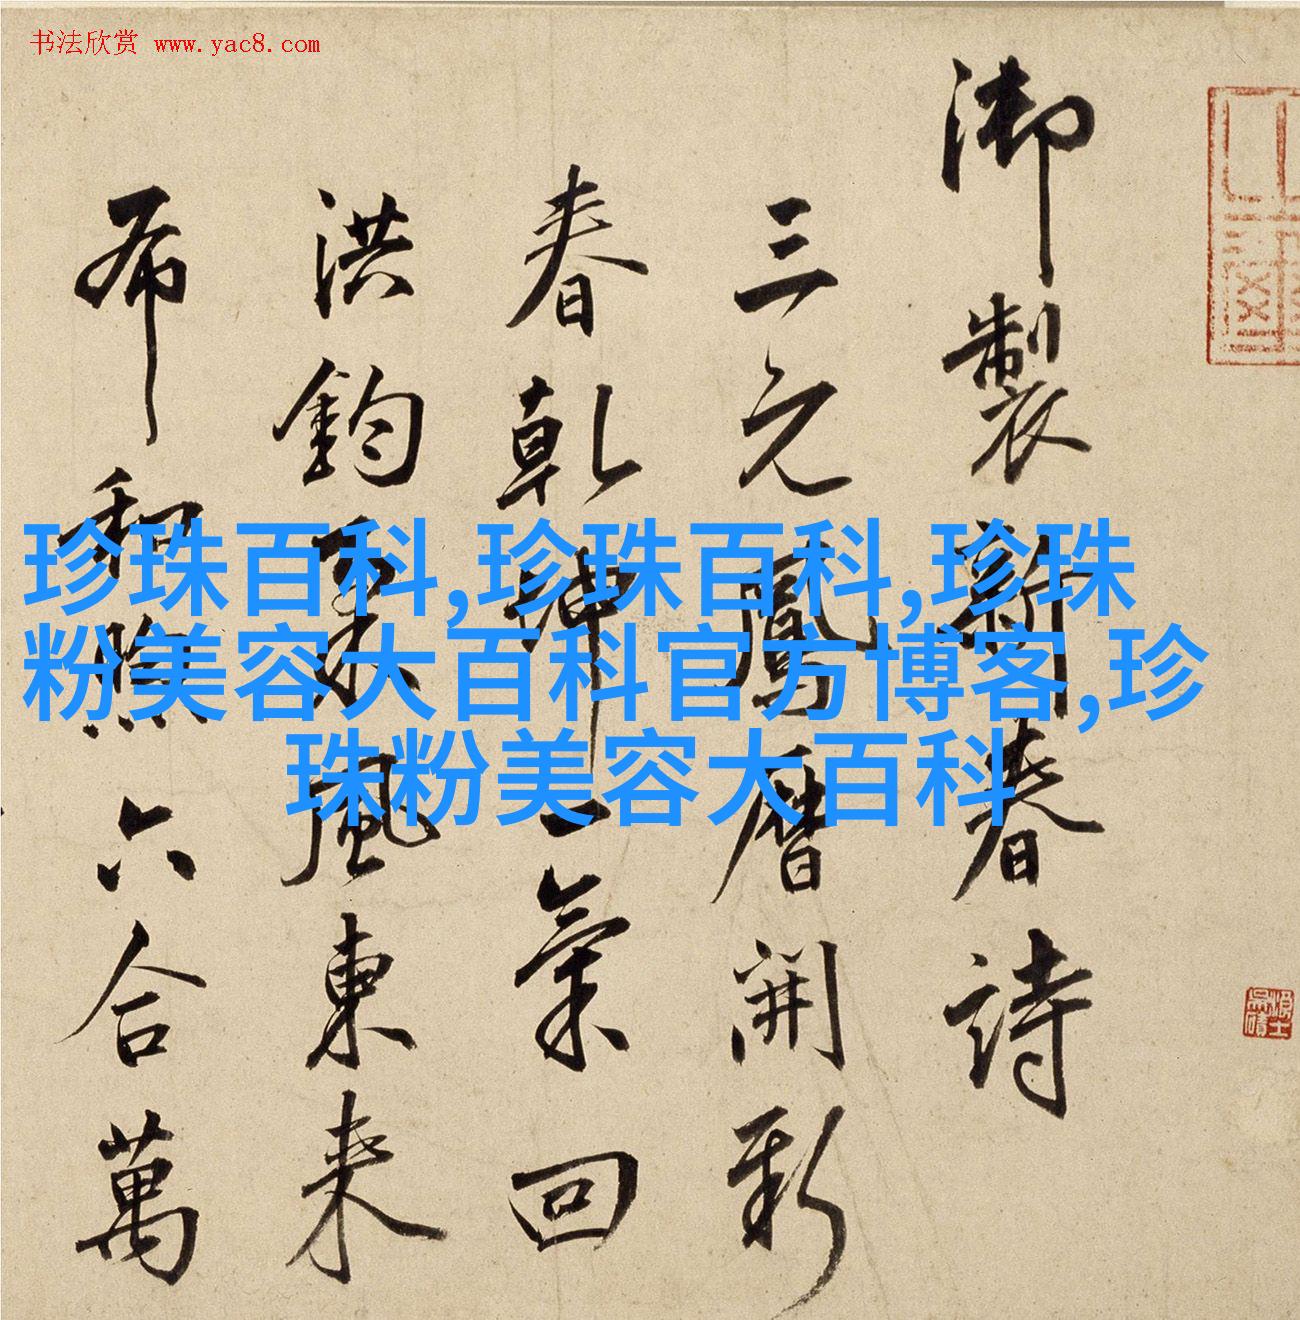 书法欣赏 www.yac8.com
御製新春詩
三元鳳曆開新
春乾坤一氣回
洪鈞
風東来
布和煦六合萬
珍珠百科,珍珠百科,珍珠
粉美容大百科官方博客,珍
珠粉美容大百科